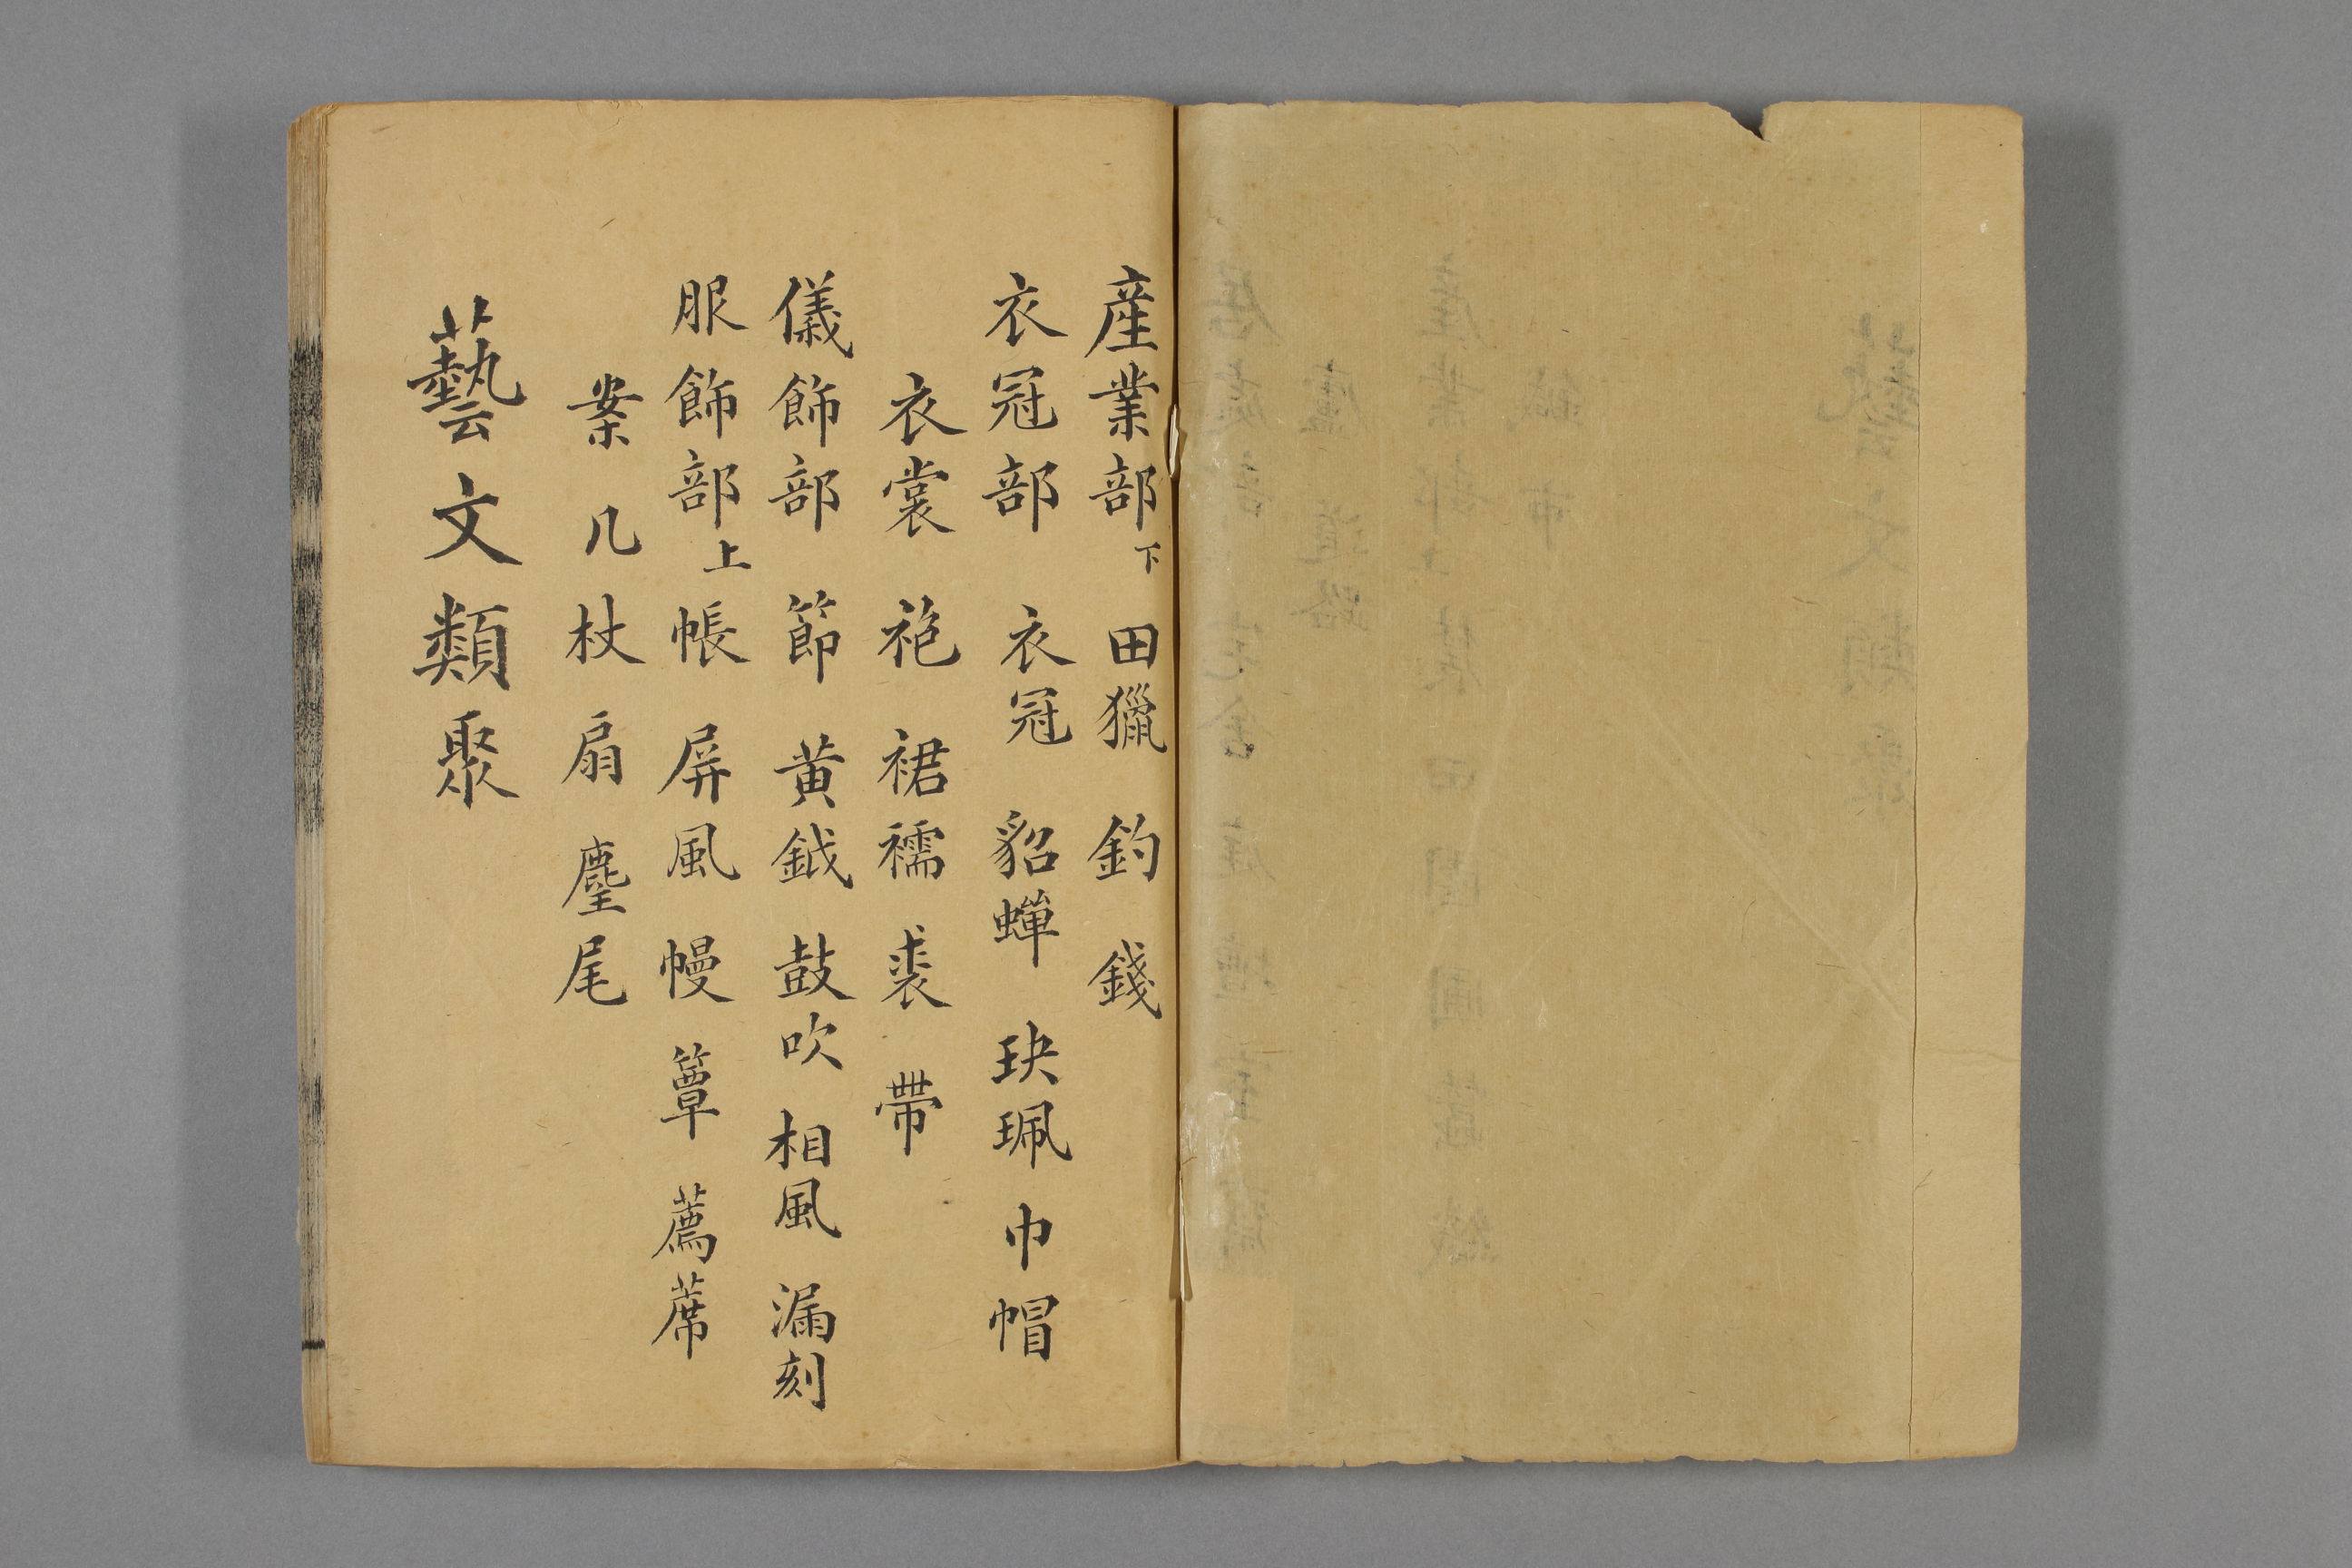 産業部下 田獵 釣 錢
衣冠部 衣冠 貂蟬 玦珮 巾帽
衣裳 袍 裙襦 裘 帶
儀飾部 節 黄鉞 鼓吹 相風 漏刻
服飾部上 帳 屏風 幔 簟 薦蓆
案 几 杖 扇 麈尾
藝文類聚